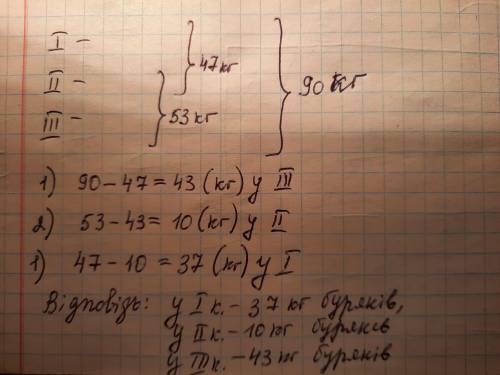 I –
47 кг
II –
90 кг
III –
53 кг
1) 90 – 47 = 43 (кг) у III
2) 53 – 43 = 10 (кг) у II
1) 47 – 10 = 37 (кг) у I
Відповідь: у I к. – 37 кг буряків,
у II к. – 10 кг буряків
у III к. – 43 кг буряків